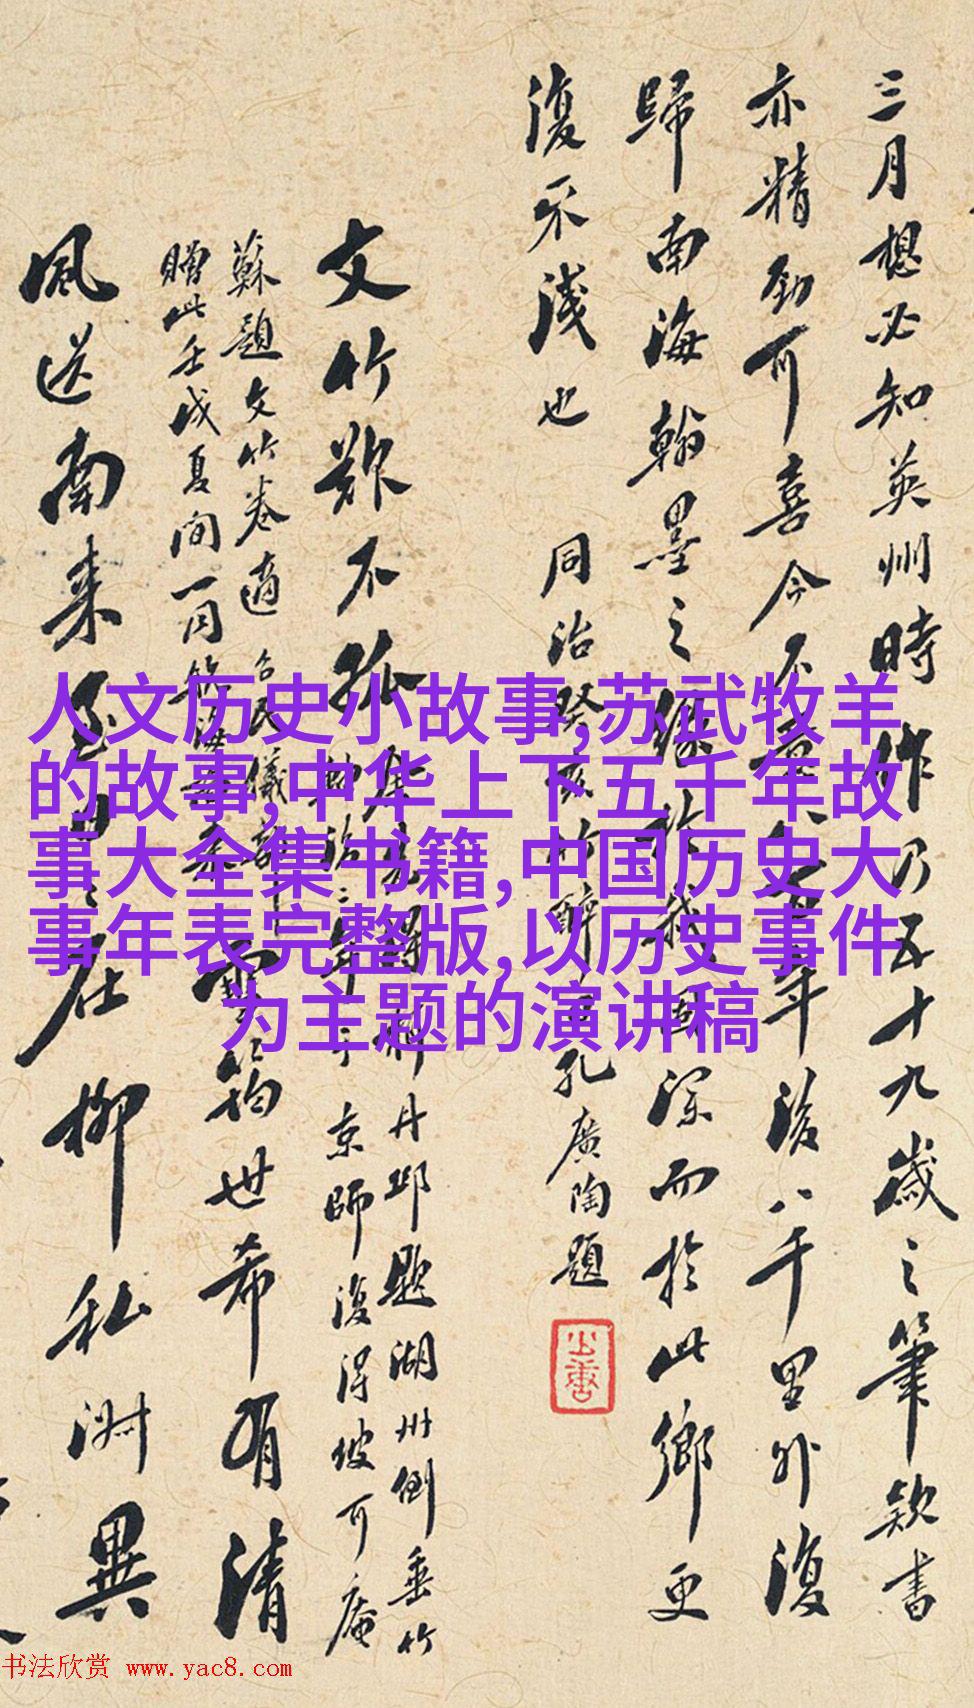 三月想必知英州時作乃五十九歲之筆款書
亦精勁可喜今不意八百年後八千里外復
歸南海翰墨之緣於我固深而於此鄉更
復不淺也 同治癸亥竹醉日孔廣陶題
文竹不孤
得柯丹邱題湖州倒垂竹
京師復得坡可庵
蘇題文竹卷適
贈此壬戌夏間一月
筠世希有清
風送南來
在柳私淑異
人文历史小故事,苏武牧羊
的故事,中华上下五千年故
事大全集书籍,中国历史大
事年表完整版,以历史事件
为主题的演讲稿
书法欣赏 www.yac8.com